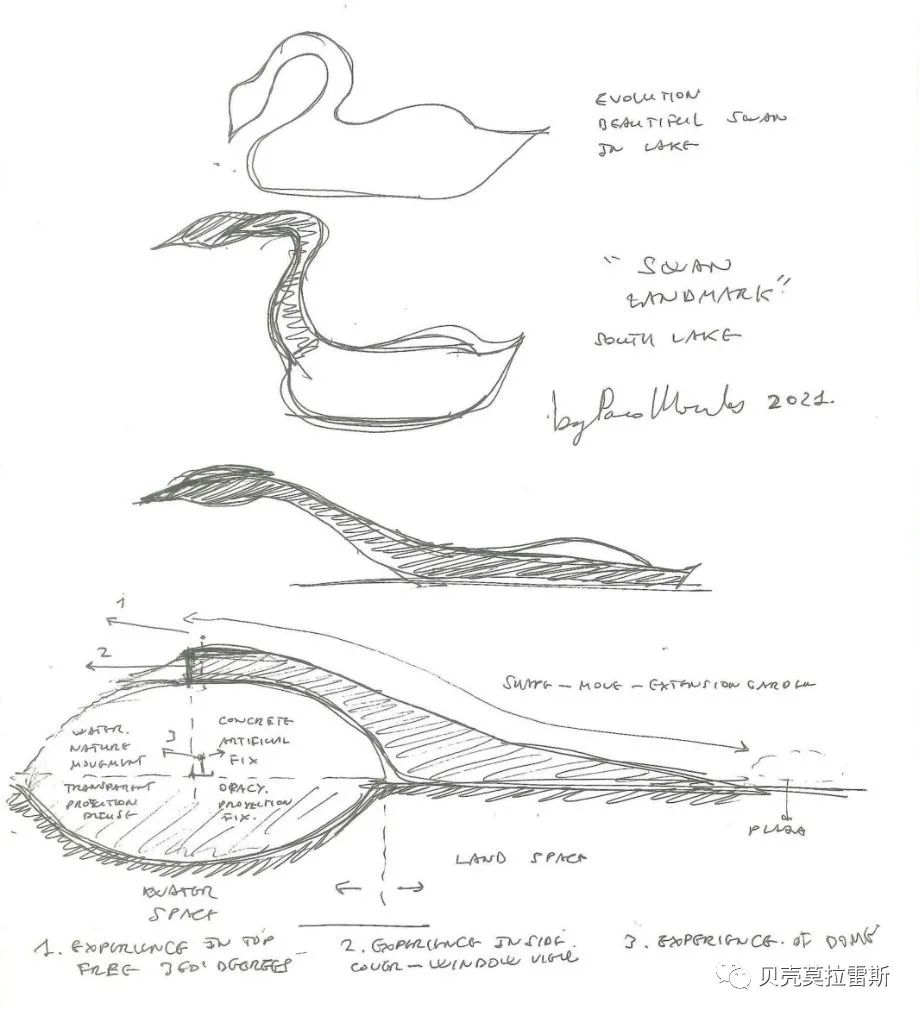 EVOLUTION
BEAUTIFUL SWAN
IN LAKE
"SWAN
LANDMARK"
SOUTH LAKE
by Paco 2021.
1
2
SHAPE – MOVE – EXTENSION GARDEN
WATER.
NATURE
MOVEMENT
3
CONCRETE
ARTIFICIAL
FIX
TRANSPARENT
PROJECTION
OPACY.
PROJECTION
FIX.
PLAZA
LAND SPACE
WATER
SPACE
1. EXPERIENCE IN TOP
FREE 360° DEGREES
2. EXPERIENCE INSIDE.
COVER – WINDOW VIEW
3. EXPERIENCE. OF DOME
贝壳莫拉雷斯